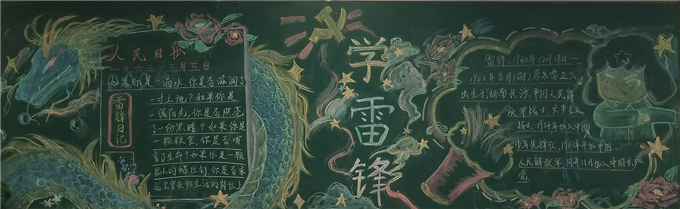 人民日报
一九六三年三月五日
如果你是一滴水,你是否滋润了
一寸土地?如果你是
一缕阳光,你是否照亮
了一份黑暗?如果你是
一颗粮食,你是否哺
育了生命?如果你是一颗
最小的螺丝钉,你是否永
远坚守你生活的岗位!
雷锋日记
学雷锋
雷锋,1940年12月18日—
1962年8月15日,原名雷正兴
出生于湖南长沙,中国人民解
放军战士,共产主义
战士,
少年先锋队,
人民解放军,同年11月加入中国共产
党